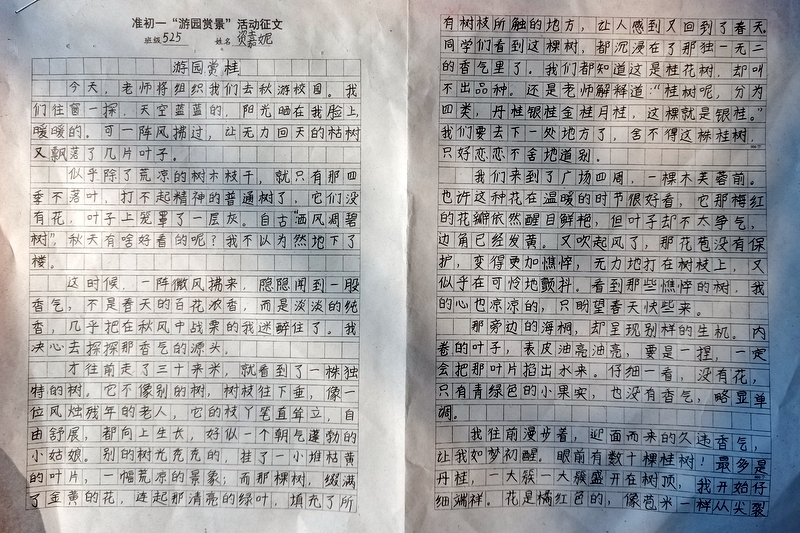 准初一“游园赏景”活动征文
班级 525 姓名 资嘉妮
游园赏桂
今天，老师将组织我们去秋游校园。我
们往窗一探，天空蓝蓝的，阳光晒在我脸上，
暖暖的。可一阵风拂过，让无力回天的枯树
又飘落了几片叶子。
似乎除了荒凉的树木枝干，就只有那四
季不落叶，打不起精神的普通树了，它们没
有花，叶子上笼罩了一层灰。自古“洒风凋碧
树”，秋天有啥好看的呢？我不以为然地下了
楼。
这时候，一阵微风拂来，隐隐闻到一股
香气，不是春天的百花浓香，而是淡淡的纯
香，几乎把在秋风中战栗的我迷醉住了。我
决心去探探那香气的源头。
才往前走了三十来米，就看到了一株独
特的树。它不像别的树，树枝往下垂，像一
位风烛残年的老人，它的枝丫笔直耸立，自
由舒展，都向上生长，好似一个朝气蓬勃的
小姑娘。别的树光秃秃的，挂了一小堆枯黄
的叶片，一幅荒凉的景象；而那棵树，缀满
了金黄的花，连起那清亮的绿叶，填充了所
有树枝所触的地方，让人感到又回到了春天。
同学们看到这棵树，都沉浸在了那独一无二
的香气里了。我们都知道这是桂花树，却叫
不出品种。还是老师解释道：“桂树呢，分为
四类，丹桂银桂金桂月桂，这棵就是银桂。”
我们要去下一处地方了，舍不得这株桂树，
只好恋恋不舍地道别。
我们来了广场四周，一棵木芙蓉前。
也许这种花在温暖的时节很好看，它那梅红
的花瓣依然醒目鲜艳，但叶子却不太争气，
边角已经发黄。又吹起风了，那花苞没有保
护，变得更加憔悴，无力地打在树枝上，又
似乎在可怜地颤抖。看到那些憔悴的树，我
的心也凉凉的，只盼望春天快些来。
那旁边的海桐，却呈现别样的生机。内
卷的叶子，表皮油亮油亮，要是一捏，一定
会把那叶片掐出水来。仔细一看，没有花，
只有青绿色的小果实，也没有香气，略显单
调。
我往前漫步着，迎面而来的久违香气，
让我如梦初醒。眼前有数十棵桂树！最多是
丹桂，一大簇一大簇盛开在树顶，我开始仔
细端祥。花是橘红色的，像苞米一样从尖裂